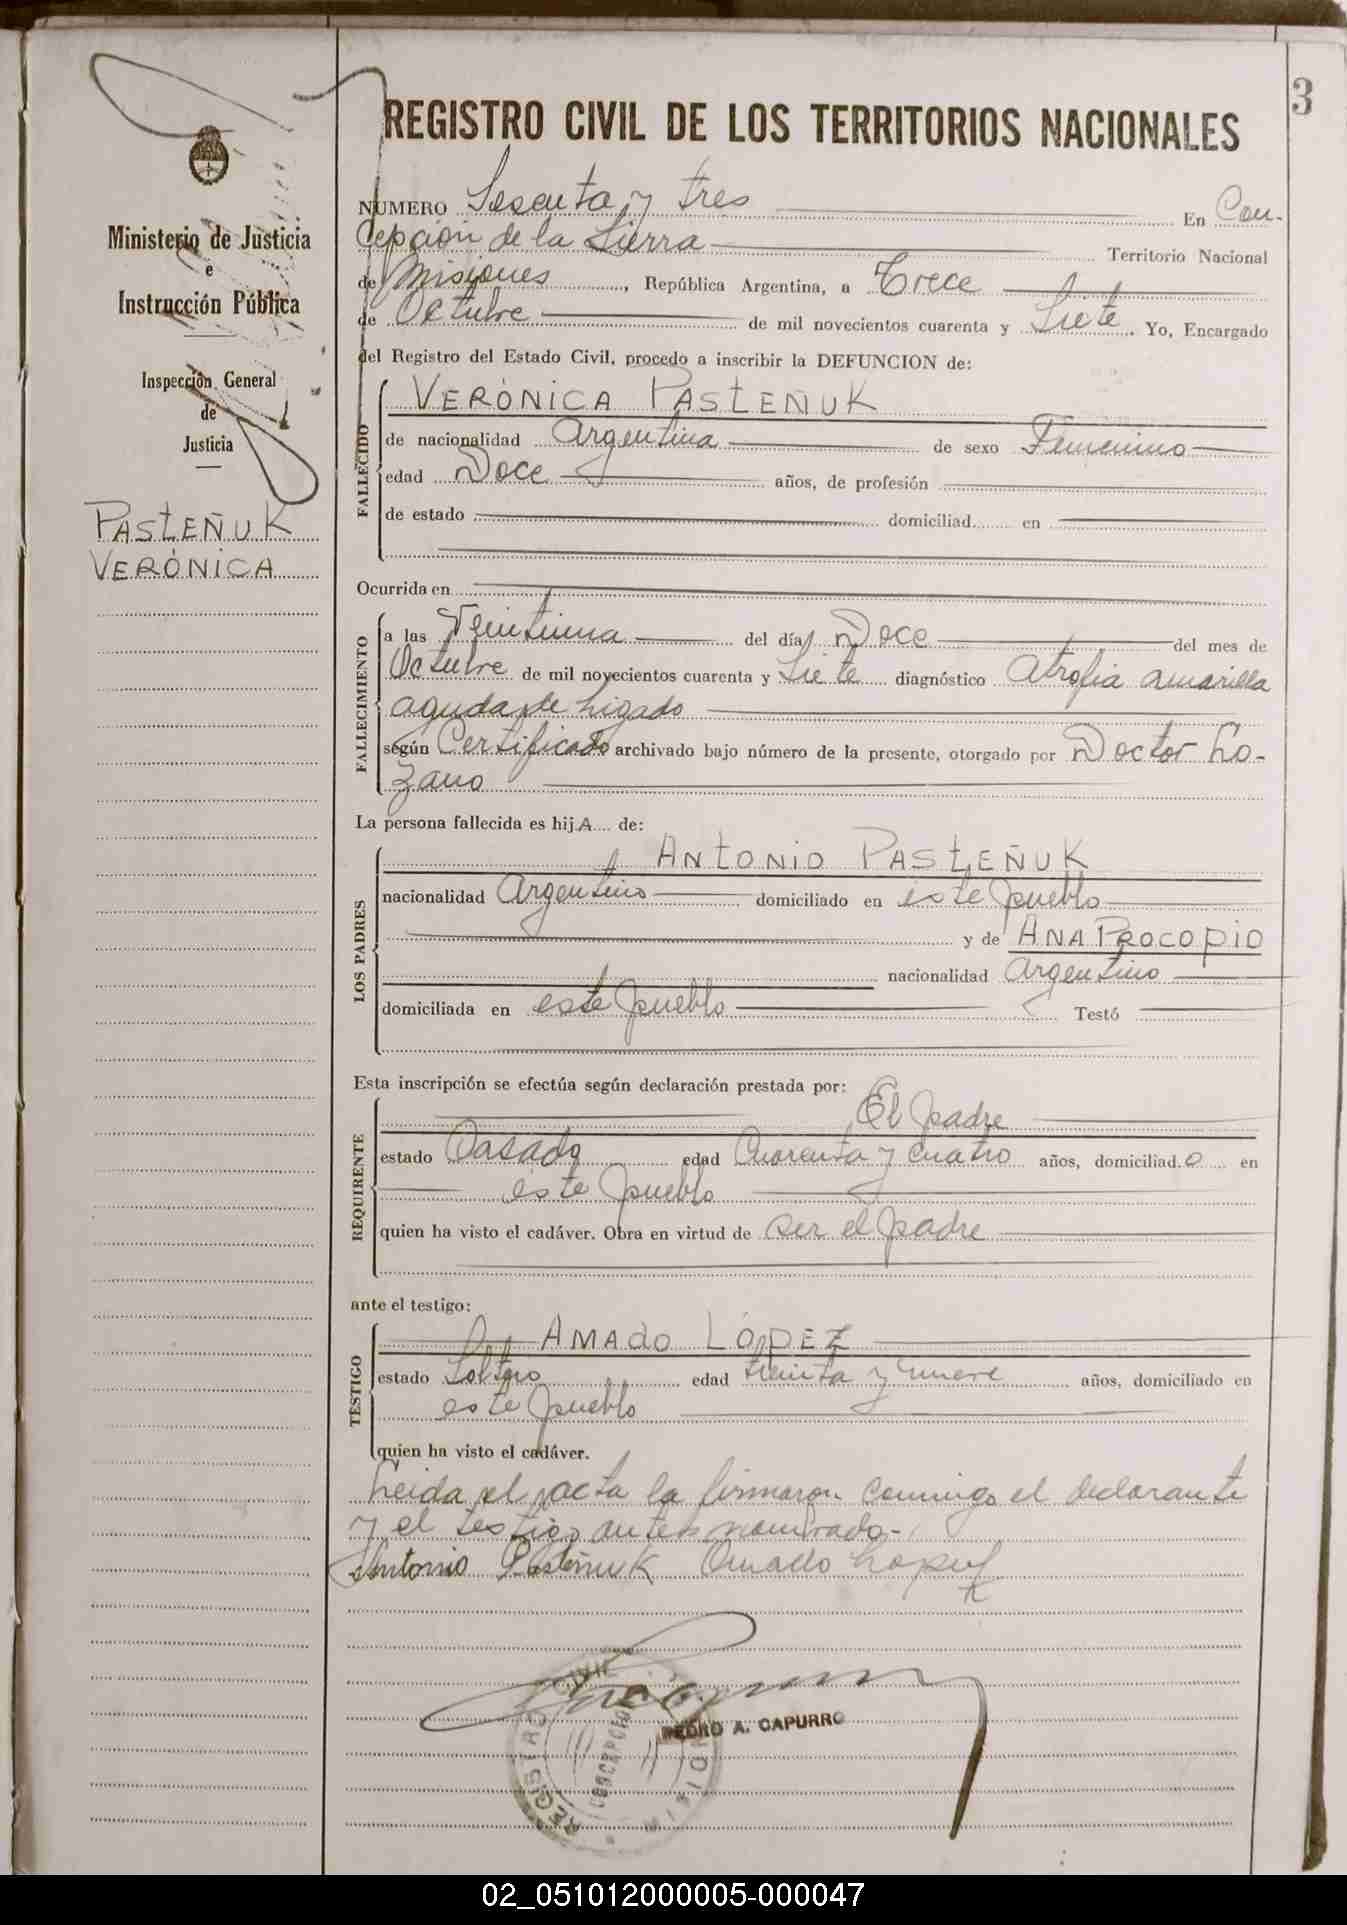 3
REGISTRO CIVIL DE LOS TERRITORIOS NACIONALES
Ministerio de Justicia
e
Instrucción Pública
Inspección General
de
Justicia
PASTEÑUK
VERÓNICA
NUMERO Sesenta y tres En Con-
cepción de la Sierra Territorio Nacional
de Misiones, República Argentina, a Trece
de Octubre de mil novecientos cuarenta y Siete. Yo, Encargado
del Registro del Estado Civil, procedo a inscribir la DEFUNCION de:
FALLECIDO
VERÓNICA PASTEÑUK
de nacionalidad Argentina de sexo Femenino
edad Doce años, de profesión
de estado domiciliad en
Ocurrida en
FALLECIMIENTO
a las Veintiuna del día Doce del mes de
Octubre de mil novecientos cuarenta y Siete diagnóstico Atrofia amarilla
aguda de higado
según Certificado archivado bajo número de la presente, otorgado por Doctor Lo-
zano
La persona fallecida es hijA de:
LOS PADRES
ANTONIO PASTEÑUK
nacionalidad Argentino domiciliado en este pueblo
y de ANA PROCOPIO
nacionalidad Argentino
domiciliada en este pueblo Testó
Esta inscripción se efectúa según declaración prestada por:
REQUIRENTE
El padre
estado Casado edad Cuarenta y cuatro años, domiciliado en
este pueblo
quien ha visto el cadáver. Obra en virtud de ser el padre
ante el testigo:
TESTIGO
AMADO LÓPEZ
estado Soltero edad treinta y nueve años, domiciliado en
este pueblo
quien ha visto el cadáver.
Leida el acta la firmaron conmigo el declarante
y el testigo antes nombrado-
Antonio Pasteñuk Amado Lopez
PEDRO A. CAPURRO
REGISTRO CIVIL
02_051012000005-000047